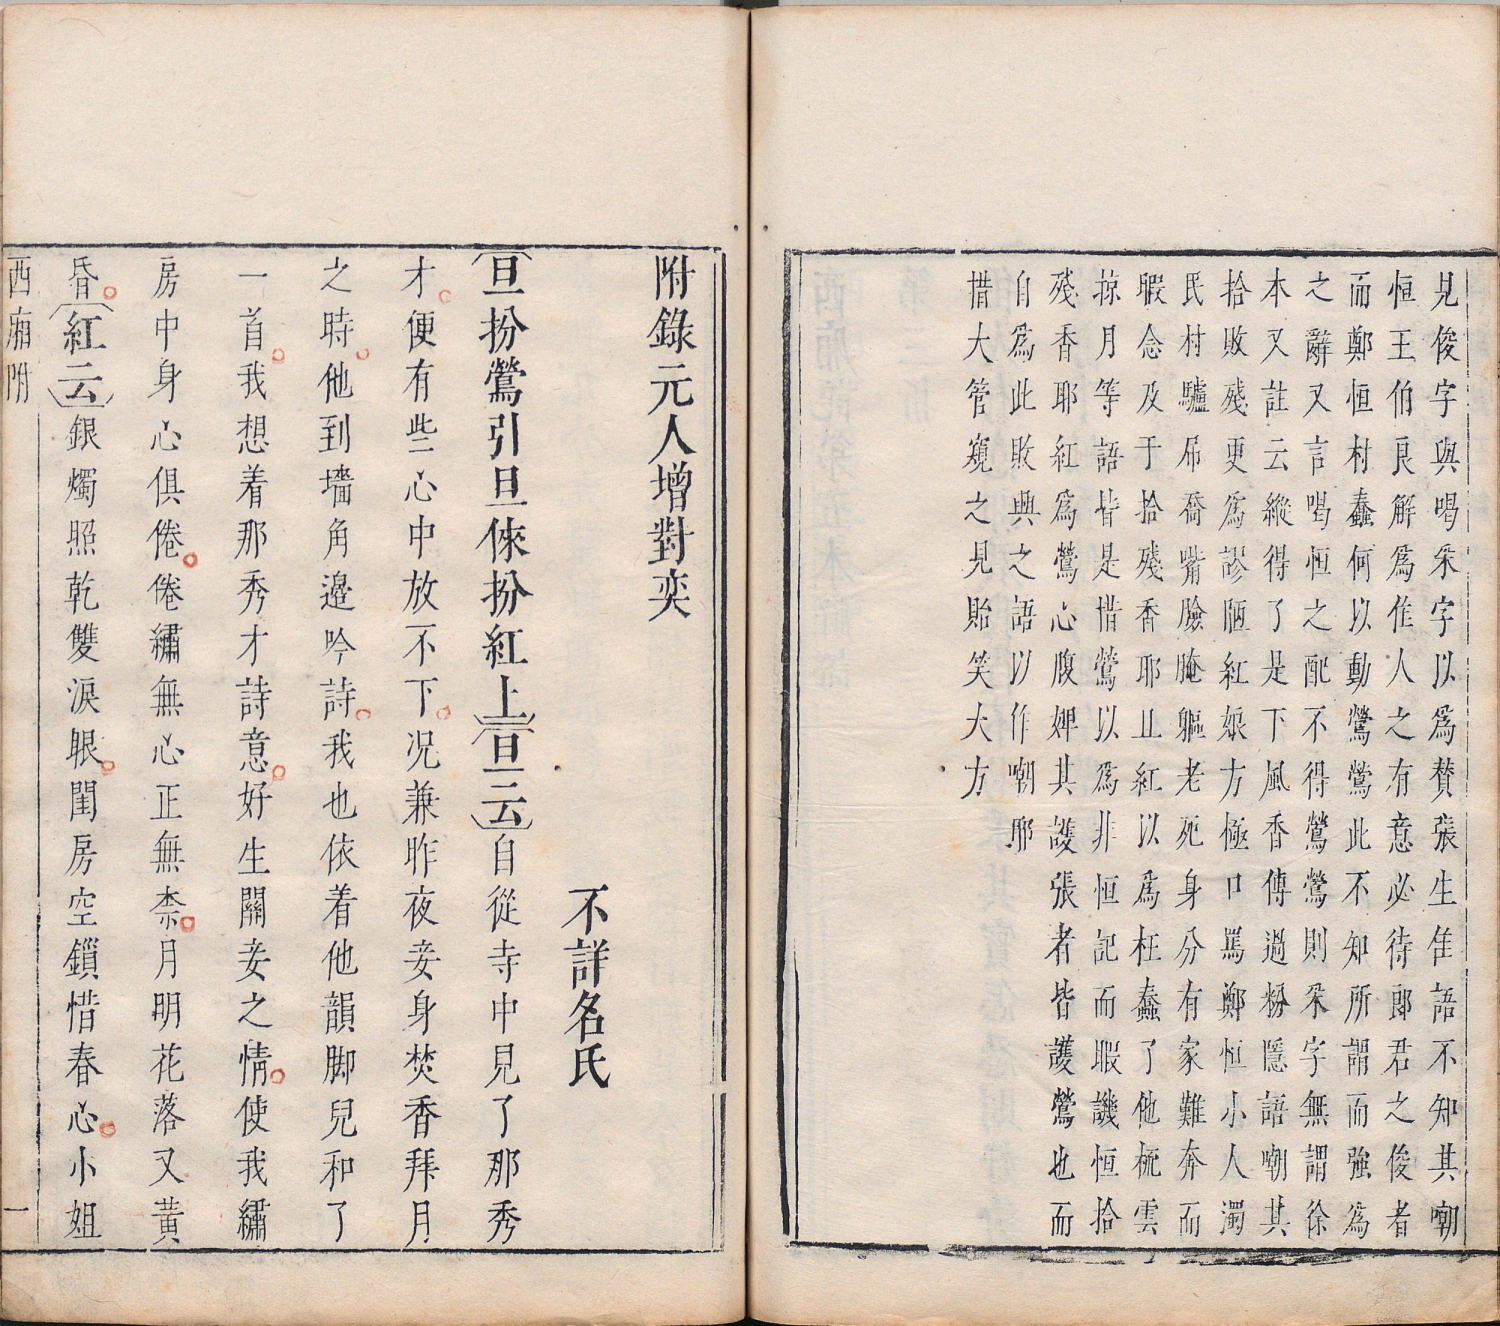 見俊字與喝采字以爲賛張生隹語不知其嘲
恒王伯良解爲隹人之有意必待郎君之俊者
而鄭恒村蠢何以動鶯鶯此不知所謂而強爲
之辭又言喝恒之配不得鶯鶯則采字無謂徐
本又註云縱得了是下風香傅過粉隱語嘲其
拾敗殘更爲謬陋紅娘方極口罵鄭恒小人濁
民村驢屌喬嘴臉腌軀老死身分有家難奔而
暇念及于拾殘香耶且紅以爲枉蠢了他梳雲
掠月等語皆是惜鶯以爲非恒記而暇譏恒拾
殘香耶紅爲鶯心腹婢其護張者皆護鶯也而
自爲此敗興之語以作嘲耶
措大管窺之見貽笑大方
附錄元人增對奕
不詳名氏
旦扮鶯引旦倈扮紅上旦云自從寺中見了那秀
才便有些心中放不下况兼昨夜妾身焚香拜月
之時他到墻角邉吟詩我也依着他韻脚兒和了
一首我想着那秀才詩意好生關妾之情使我繡
房中身心俱倦倦繡無心正無柰月明花落又黃
昏紅云銀燭照乾雙淚眼閨房空鎖惜春心小姐
西廂附
一